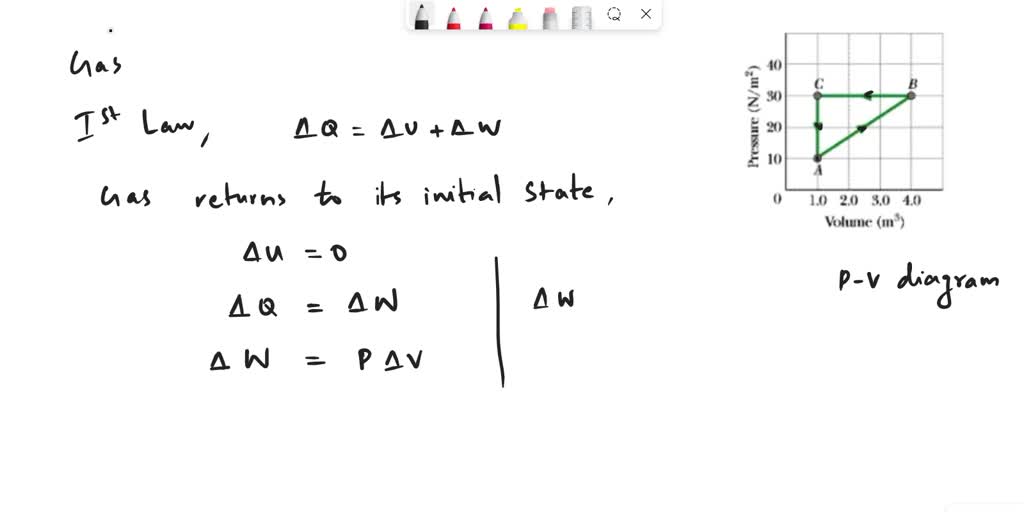 Gas
Ist Law, ΔQ = ΔU + ΔW
Gas returns to its initial state,
Δu = 0
ΔQ = ΔW
ΔW
ΔW = PΔV
Pressure (N/m²)
40
30
20
10
0
C
B
A
1.0 2.0 3.0 4.0
Volume (m³)
P-V diagram